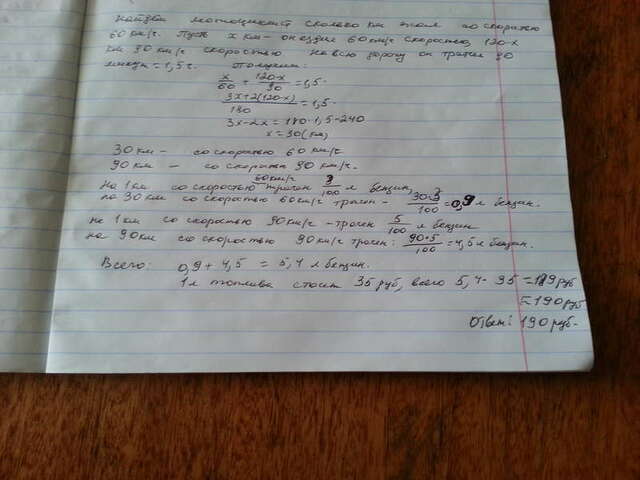 Найдём мотоциклист сколько км ехал со скоростью
60 км/ч. Пусть x км – он ездил 60 км/ч скоростью, 120-x
км 90 км/ч скоростью На всю дорогу он тратил 90
минут = 1,5 ч. Получим:
x/60 + 120-x/90 = 1,5.
3x+2(120-x)/180 = 1,5.
3x-2x = 180·1,5-240
x = 30 (км)
30 км – со скоростью 60 км/ч
90 км – со скоростью 90 км/ч.
60 км/ч
На 1 км со скоростью трачен 3/100 л бензин,
на 30 км со скоростью 60 км/ч трачен – 30·3/100 = 0,9 л бензин.
на 1 км со скоростью 90 км/ч – трачен 5/100 л бензин
на 90 км со скоростью 90 км/ч трачен: 90·5/100 = 4,5 л бензин.
Всего: 0,9 + 4,5 = 5,4 л бензин.
1 л топлива стоит 35 руб, всего 5,4· 35 = 189 руб
≈ 190 руб
Ответ: 190 руб.